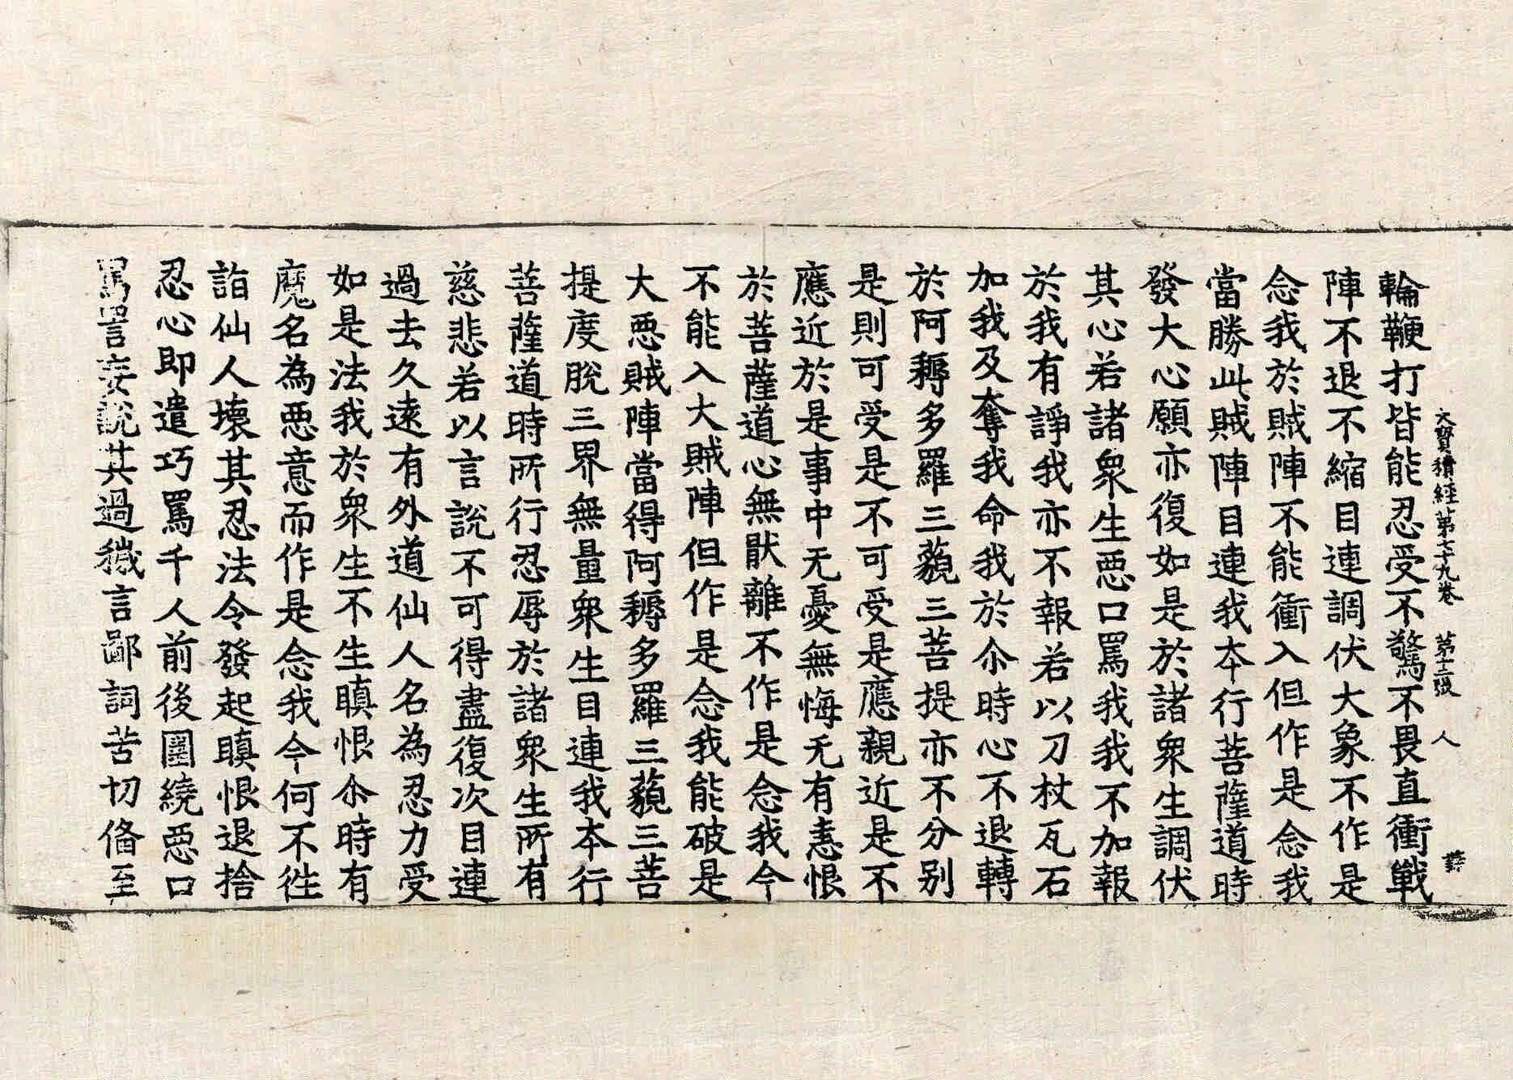 大寶積經第七十九卷 第十二張 人
輪鞭打皆能忍受不驚不畏直衝戰
陣不退不縮目連調伏大象不作是
念我於賊陣不能衝入但作是念我
當勝此賊陣目連我本行菩薩道時
發大心願亦復如是於諸衆生調伏
其心若諸衆生惡口罵我我不加報
於我有諍我亦不報若以刀杖瓦石
加我及奪我命我於尒時心不退轉
於阿耨多羅三藐三菩提亦不分別
是則可受是不可受是應親近是不
應近於是事中无憂無悔无有恚恨
於菩薩道心無猒離不作是念我今
不能入大賊陣但作是念我能破是
大惡賊陣當得阿耨多羅三藐三菩
提度脫三界無量衆生目連我本行
菩薩道時所行忍辱於諸衆生所有
慈悲若以言說不可得盡復次目連
過去久遠有外道仙人名為忍力受
如是法我於衆生不生瞋恨尒時有
魔名為惡意而作是念我今何不往
詣仙人壞其忍法令發起瞋恨退捨
忍心即遣巧罵千人前後圍繞惡口
罵詈妄說其過穢言鄙詞苦切俻至